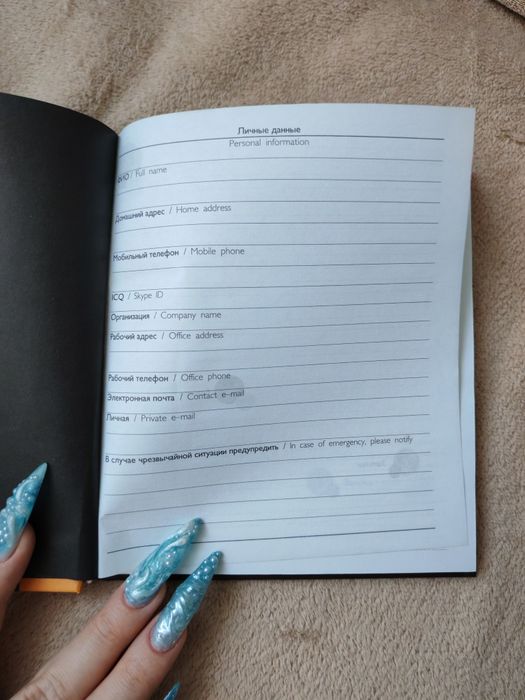 Личные данные
Personal information
ФИО / Full name
Домашний адрес / Home address
Мобильный телефон / Mobile phone
ICQ / Skype ID
Организация / Company name
Рабочий адрес / Office address
Рабочий телефон / Office phone
Электронная почта / Contact e-mail
Личная / Private e-mail
В случае чрезвычайной ситуации предупредить / In case of emergency, please notify